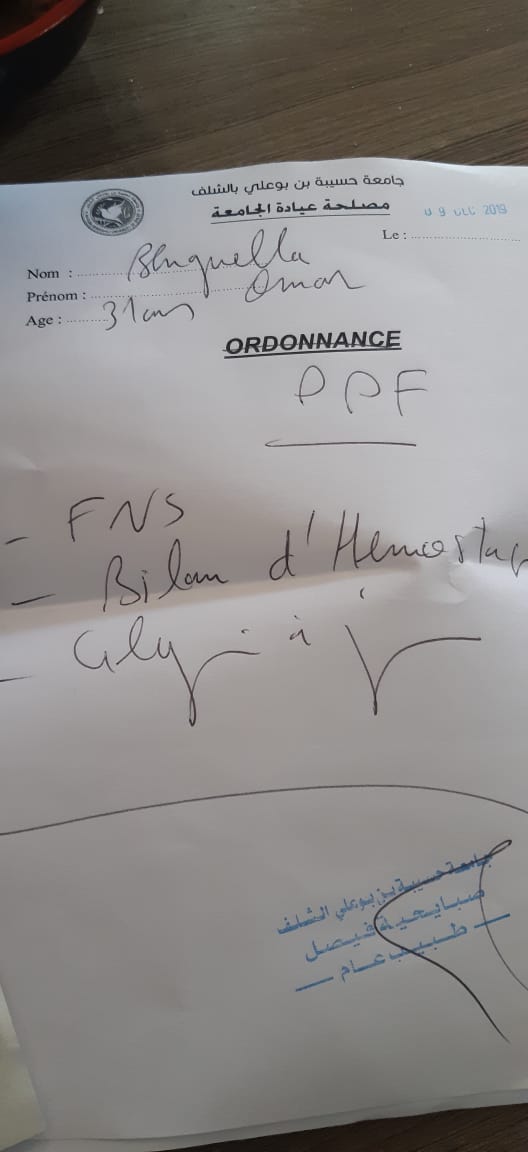 جامعة حسيبة بن بوعلي بالشلف
مصلحة عيادة الجامعة
09 DEC 2019
Le :
Nom : Benguella
Prénom : Omar
Age : 31 ans
ORDONNANCE
PPF
- FNS
- Bilan d'Hemostase
- Gly à j
جامعة حسيبة بن بوعلي الشلف
صبايحية فيصل
طبيب عام